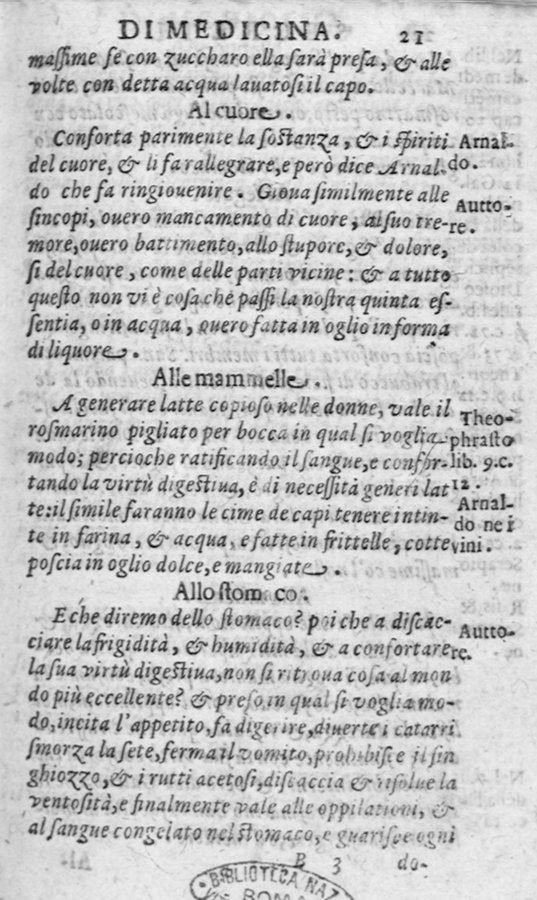 DI MEDICINA. 21
massime se con zuccharo ella sarà presa, & alle
volte con detta acqua lavatosi il capo.
Al cuore.
Conforta parimente la sostanza, & i spiriti
del cuore, & li fa rallegrare, e però dice Arnal-
do che fa ringiouenire. Gioua similmente alle
sincopi, ouero mancamento di cuore, al suo tre-
more, ouero battimento, allo stupore, & dolore,
si del cuore, come delle parti vicine: & a tutto
questo non vi è cosa che passi la nostra quinta es-
sentia, o in acqua, ouero fatta in oglio in forma
di liquore.
Arnal-
do.
Autto-
re.
Alle mammelle.
A generare latte copioso nelle donne, vale il
rosmarino pigliato per bocca in qual si voglia
modo; percioche ratificando il sangue, e confor-
tando la virtù digestiua, è di necessità generi lat
te: il simile faranno le cime de capi tenere intin-
te in farina, & acqua, e fatte in frittelle, cotte
poscia in oglio dolce, e mangiate.
Theo-
phrasto
lib. 9. c.
12.
Arnal-
do ne i
vini.
Allo stomaco.
E che diremo dello stomaco? poi che a discac-
ciare la frigidità, & humidità, & a confortare
la sua virtù digestiua, non si ritroua cosa al mon
do più eccellente? & preso in qual si voglia mo-
do, incita l'appetito, fa digerire, diuerte i catarri
smorza la sete, ferma il vomito, prohibisce il sin
ghiozzo, & i rutti acetosi, discaccia & risolue la
ventosità, e finalmente vale alle oppilationi, &
al sangue congelato nel stomaco, e guarisce ogni
Autto-
re.
B 3 do-
BIBLIOTECA NAZ
ROMA